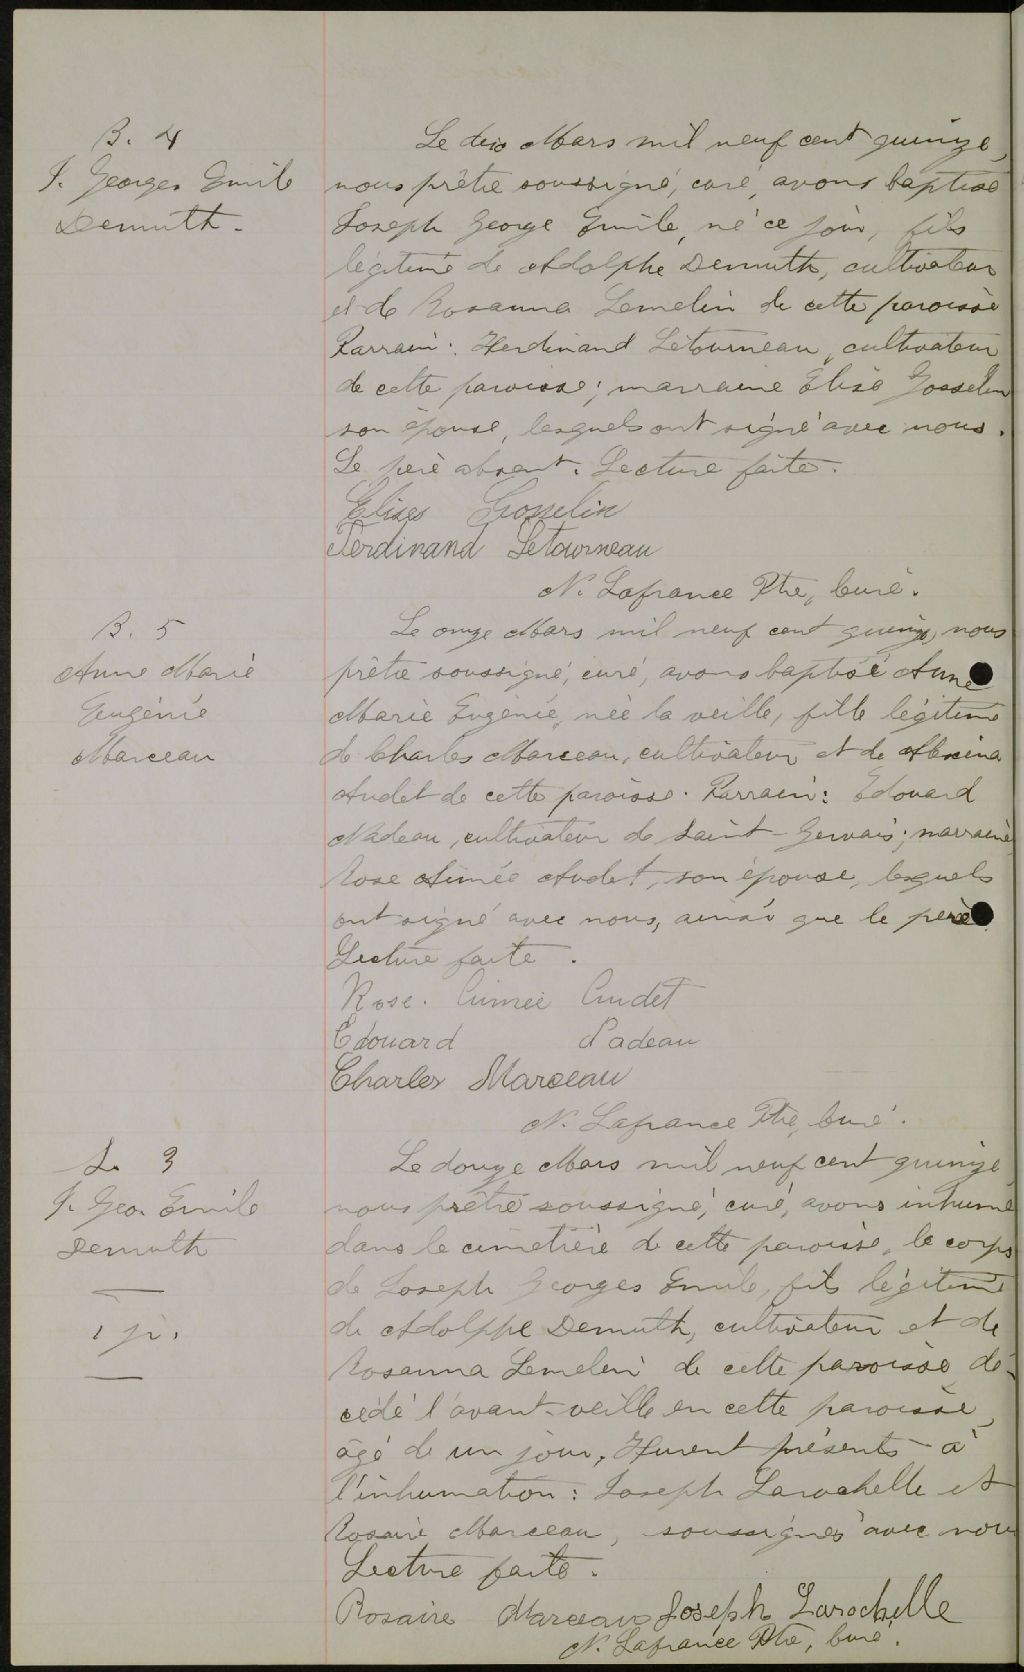 B. 4
J. Georges Emile
Demuth.
Le dix Mars mil neuf cent quinze,
nous prêtre soussigné, curé, avons baptisé
Joseph George Emile, né ce jour, fils
légitime de Adolphe Demuth, cultivateur
et de Rosanna Lemelin de cette paroisse
Parrain: Ferdinand Létourneau, cultivateur
de cette paroisse; marraine Elise Gosselin
son épouse, lesquels ont signé avec nous.
Le père absent. Lecture faite.
Elises Gosselin
Ferdinand Letourneau
N. Lafrance Ptre, Curé.
B. 5
Anne Marie
Eugénie
Marceau
Le onze Mars mil neuf cent quinze, nous
prêtre soussigné, curé, avons baptisé Anne
Marie Eugenie, née la veille, fille légitime
de Charles Marceau, cultivateur et de
Audet de cette paroisse. Parrain: Edouard
Nadeau, cultivateur de Saint-Gervais; marraine
Rose Aimée Audet, son épouse, lesquels
ont signé avec nous, ainsi que le père
Lecture faite.
Rose. Aimée Audet
Edouard Nadeau
Charles Marceau
N. Lafrance Ptre, Curé.
S. 3
J. Geo. Emile
Demuth
1 jr.
Le douze Mars mil neuf cent quinze
nous prêtre soussigné, curé, avons inhumé
dans le cimetière de cette paroisse, le corps
de Joseph Georges Emile, fils légitime
de Adolphe Demuth, cultivateur et de
Rosanna Lemelin de cette paroisse dé-
cédé l'avant-veille en cette paroisse,
âgé de un jour. Furent présents à
l'inhumation: Joseph Larochelle et
Rosaire Marceau, soussignés avec nous
Lecture faite.
Rosaire Marceau Joseph Larochelle
N. Lafrance Ptre, Curé.